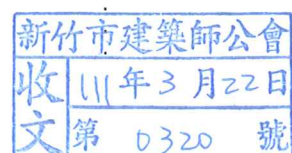 新竹市建築師公會
收文
111年3月22日
第 0320 號